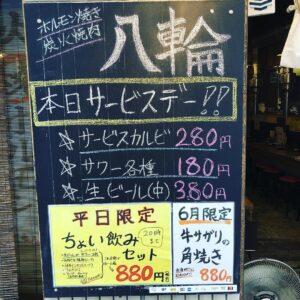 ホルモン焼き
炭火焼肉
八輪
本日サービスデー!!
☆サービスカルビ 280円
☆サワー各種 180円
☆生ビール(中) 380円
平日限定
ちょい飲み
セット
20時
まで
880円
6月限定
牛サガリの
角焼き
880円